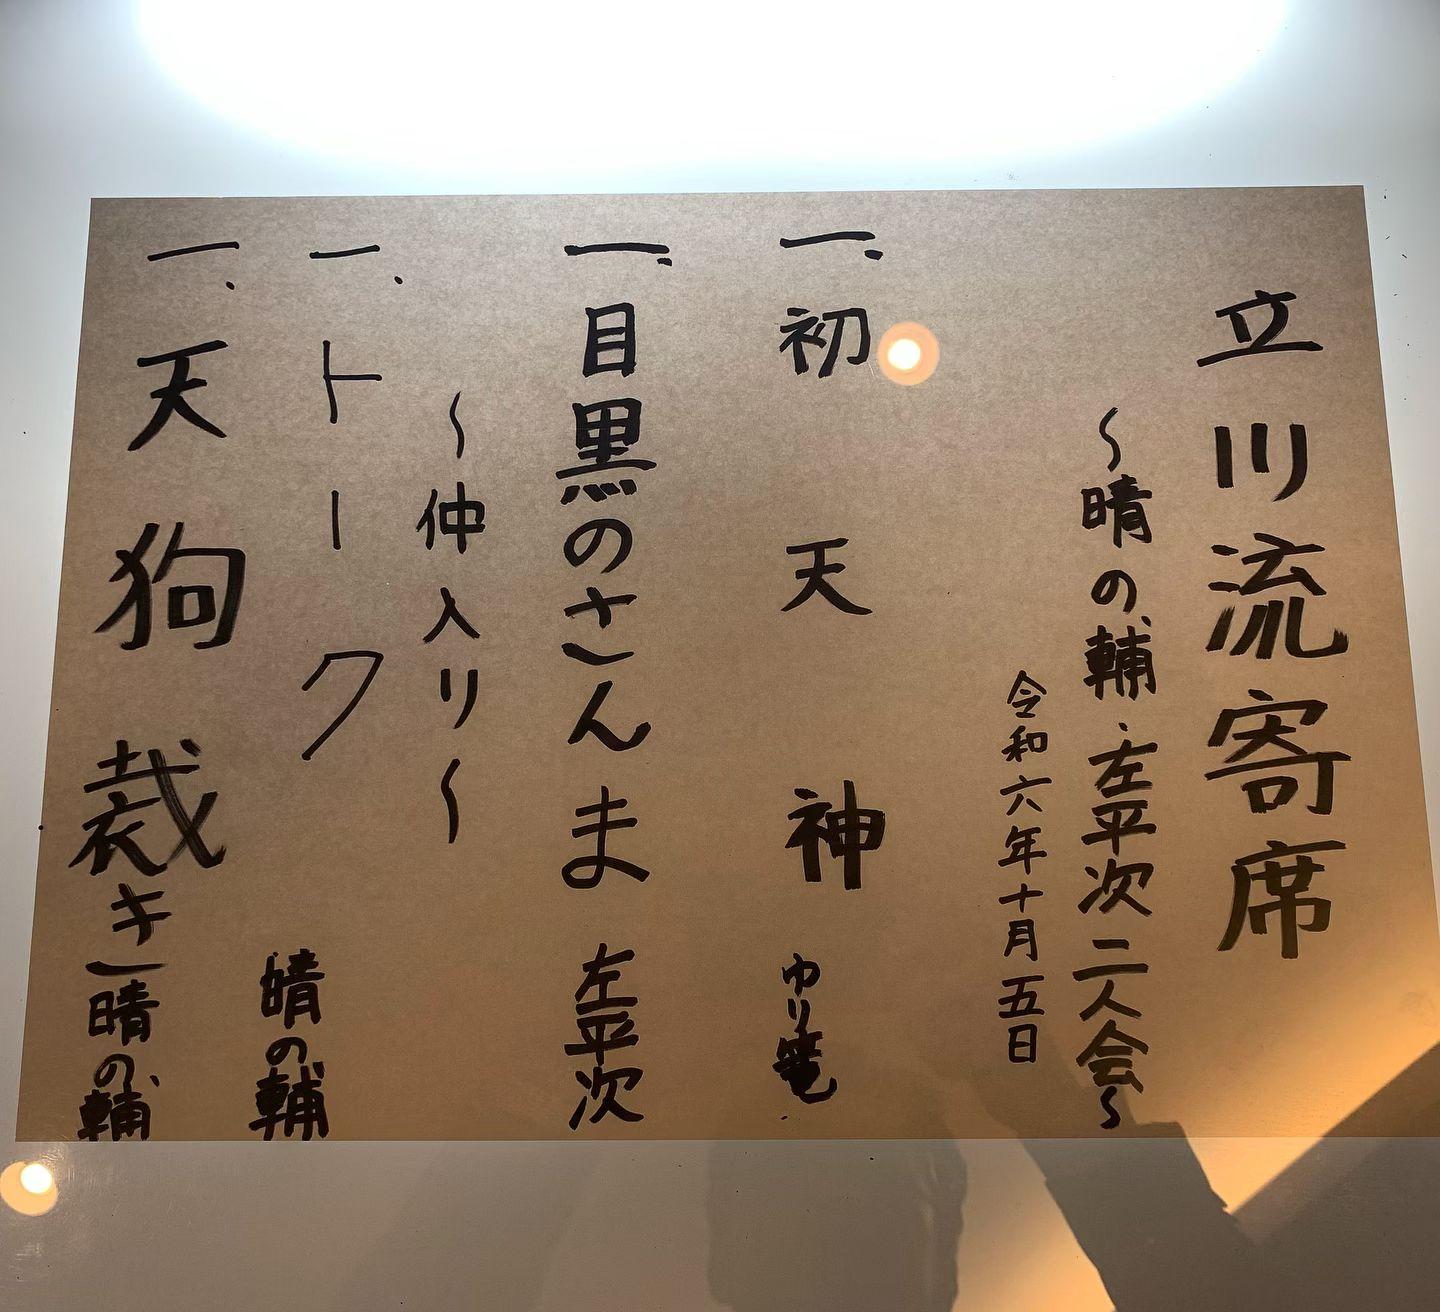 立川流寄席
〜晴の輔・左平次二人会〜
令和六年十月五日
一、初天神 ゆり竜
一、目黒のさんま 左平次
〜仲入り〜
一、トーク 晴の輔
一、天狗裁き 晴の輔